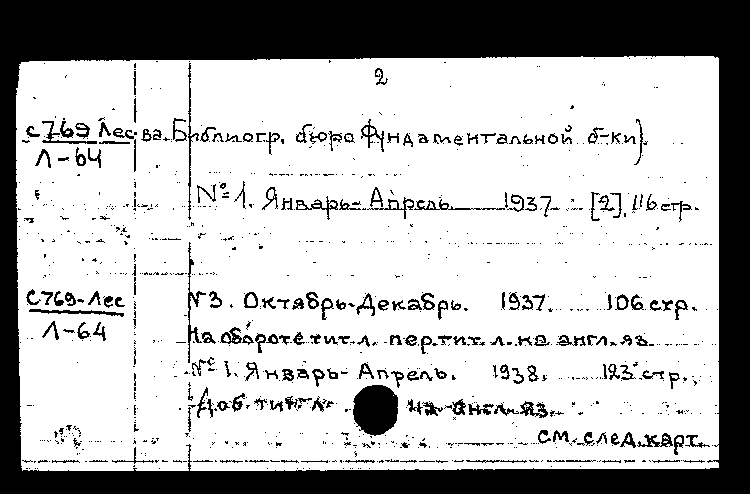 2
с769 Лес ва. Библиогр. бюро Фундаментальной б-ки).
Л-64
№ 1. Январь-Апрель 1937 [2], 116 стр.
С769-Лес №3. Октябрь-Декабрь. 1937. 106 стр.
Л-64 На обороте тит. л. пер. тит. л. на англ. яз.
№ 1. Январь-Апрель. 1938. 123 стр.
Доб. тит. л. на англ. яз.
см. след. карт.